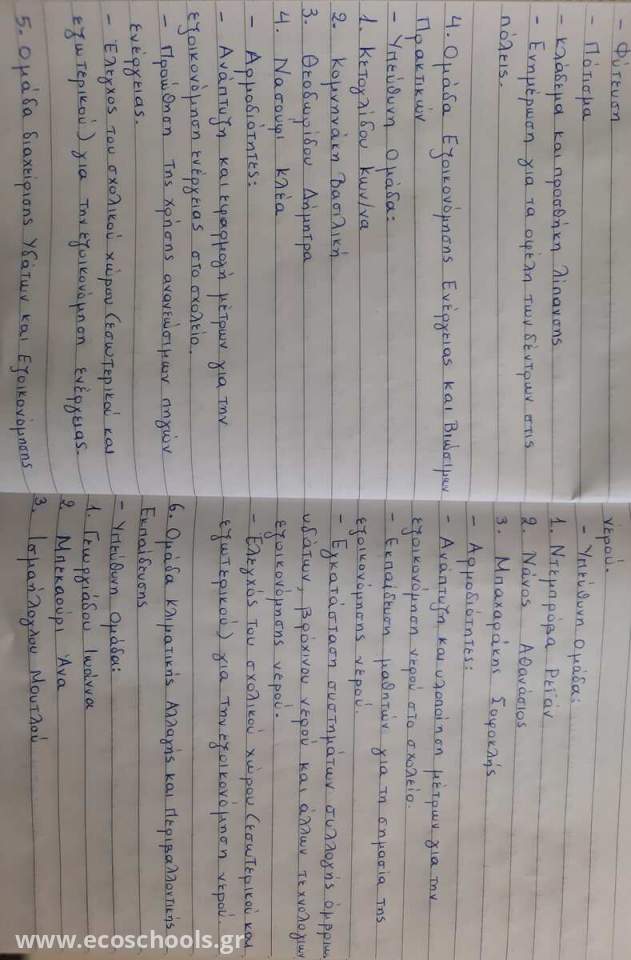 - Φύτευση
- Πότισμα
- Κλάδεμα και προσθήκη λίπανσης
- Ενημέρωση για τα οφέλη των δέντρων στις
πόλεις.
4. Ομάδα Εξοικονόμησης Ενέργειας και Βιώσιμων
Πρακτικών
- Υπεύθυνη Ομάδα:
1. Κετσγλίδου Κων/να
2. Κομνηνάκη Βασιλική
3. Θεοδωρίδου Δήμητρα
4. Νασουφι Κλέα
- Αρμοδιότητες:
- Ανάπτυξη και εφαρμογή μέτρων για την
εξοικονόμηση ενέργειας στο σχολείο.
- Προώθηση της χρήσης ανανεώσιμων πηγών
ενέργειας.
- Έλεγχος του σχολικού χώρου (εσωτερικού και
εξωτερικού) για την εξοικονόμηση ενέργειας.
5. Ομάδα διαχείρισης Υδάτων και Εξοικονόμησης
νερού.
- Υπεύθυνη Ομάδα:
1. Ντεμπρόβα Ρεϊάν
2. Νάνος Αθανάσιος
3. Μπαχαράκης Σοφοκλής
- Αρμοδιότητες:
- Ανάπτυξη και υλοποίηση μέτρων για την
εξοικονόμηση νερού στο σχολείο.
- Εκπαίδευση μαθητών για τη σημασία της
εξοικονόμησης νερού.
- Εγκατάσταση συστημάτων συλλογής όμβριων
υδάτων, βρόχινου νερού και άλλων τεχνολογιών
εξοικονόμησης νερού.
- Έλεγχος του σχολικού χώρου (εσωτερικού και
εξωτερικού) για την εξοικονόμηση νερού.
6. Ομάδα Κλιματικής Αλλαγής και Περιβαλλοντικής
Εκπαίδευσης
- Υπεύθυνη Ομάδα:
1. Γεωργιάδου Ιωάννα
2 Μπεκαούρι Άνα
3. Ισμαήλογλου Μουτλού
www.ecoschools.gr